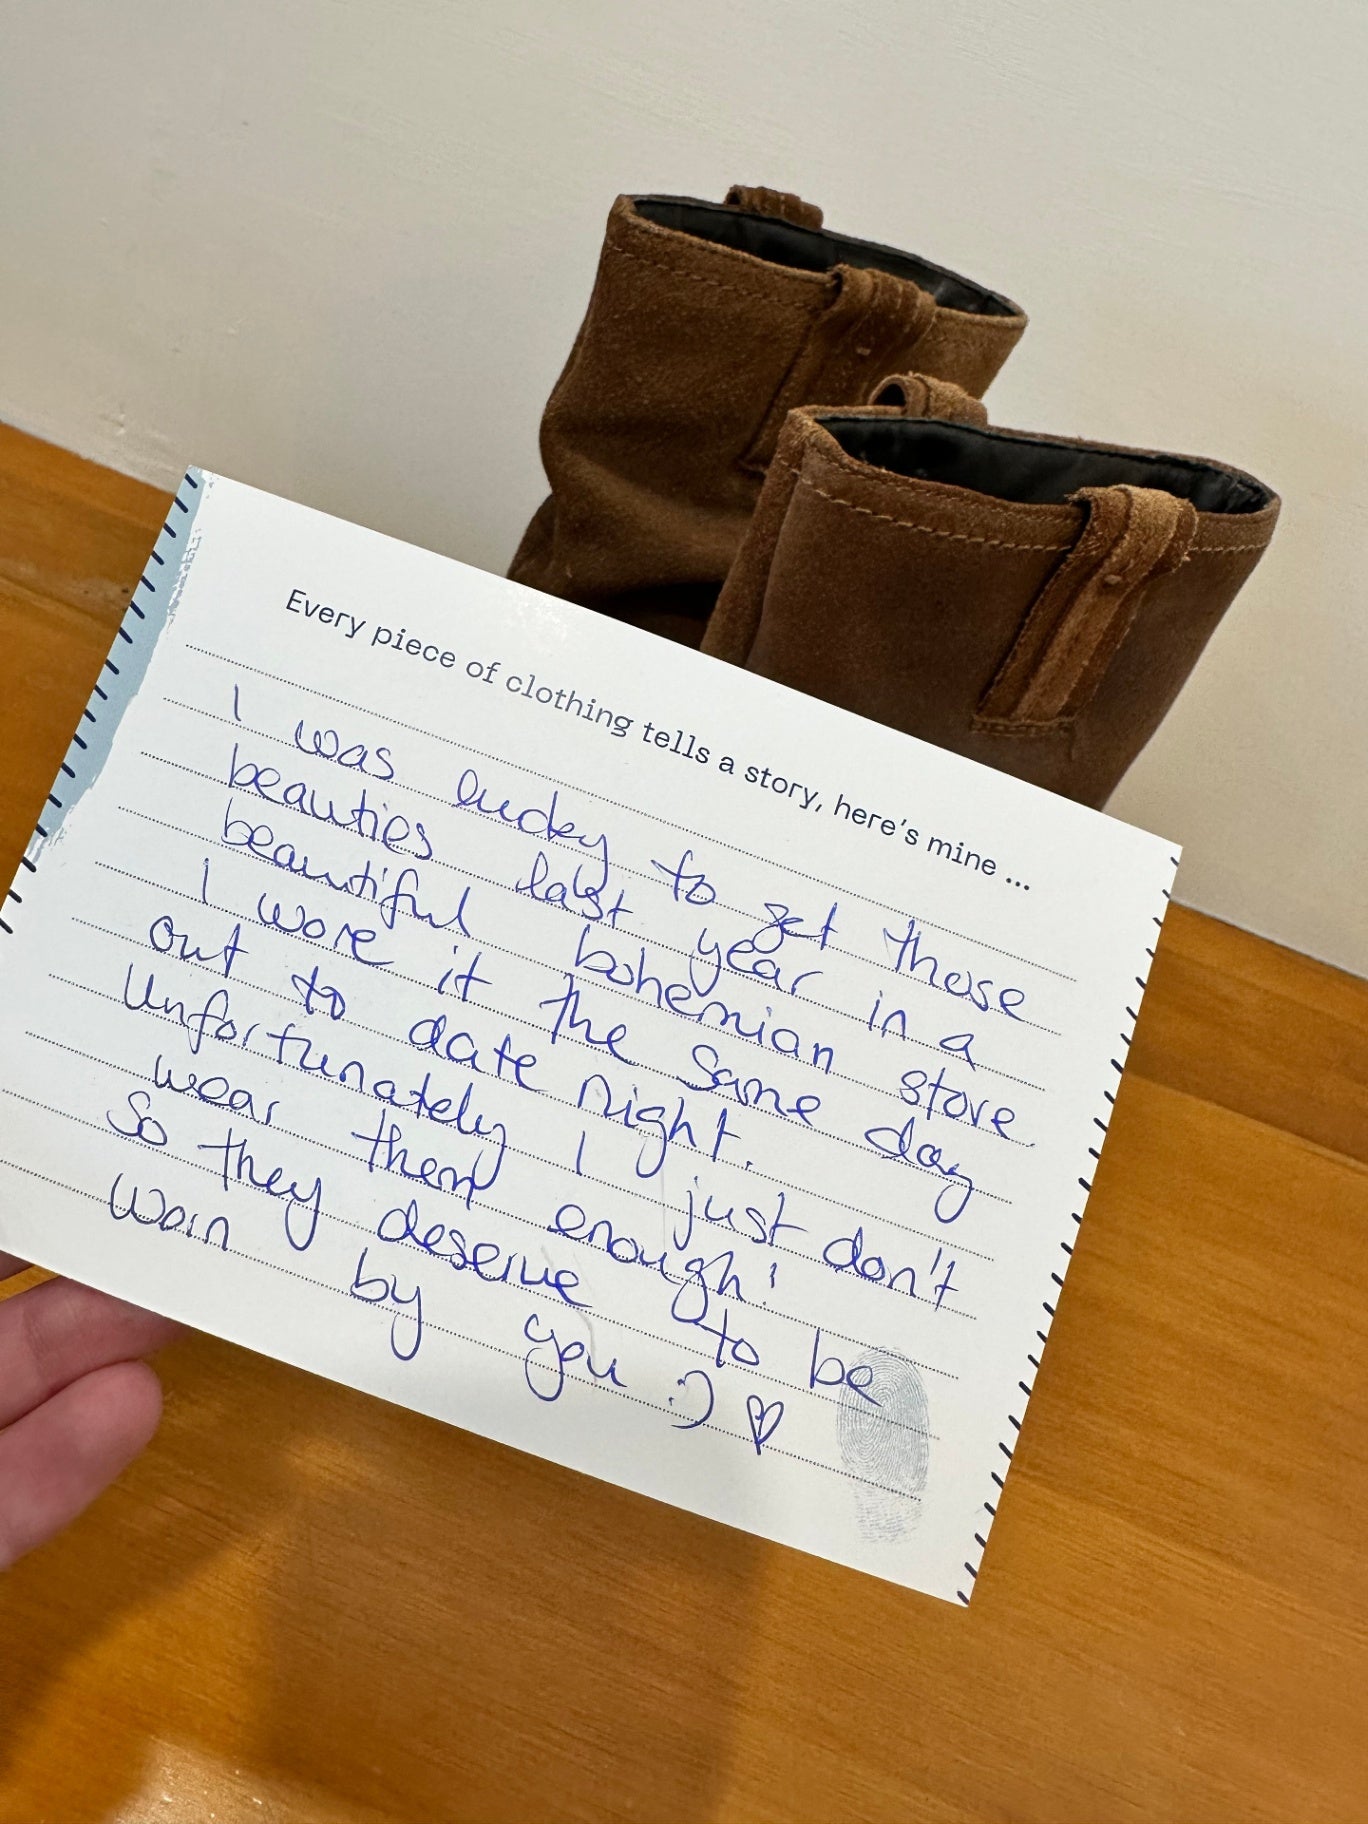 Every piece of clothing tells a story, here's mine ...
I was lucky to get these
beauties last year in a
beautiful bohemian store.
I wore it the same day
out to date night.
Unfortunately I just don't
wear them enough!
So they deserve to be
worn by you :) ♡